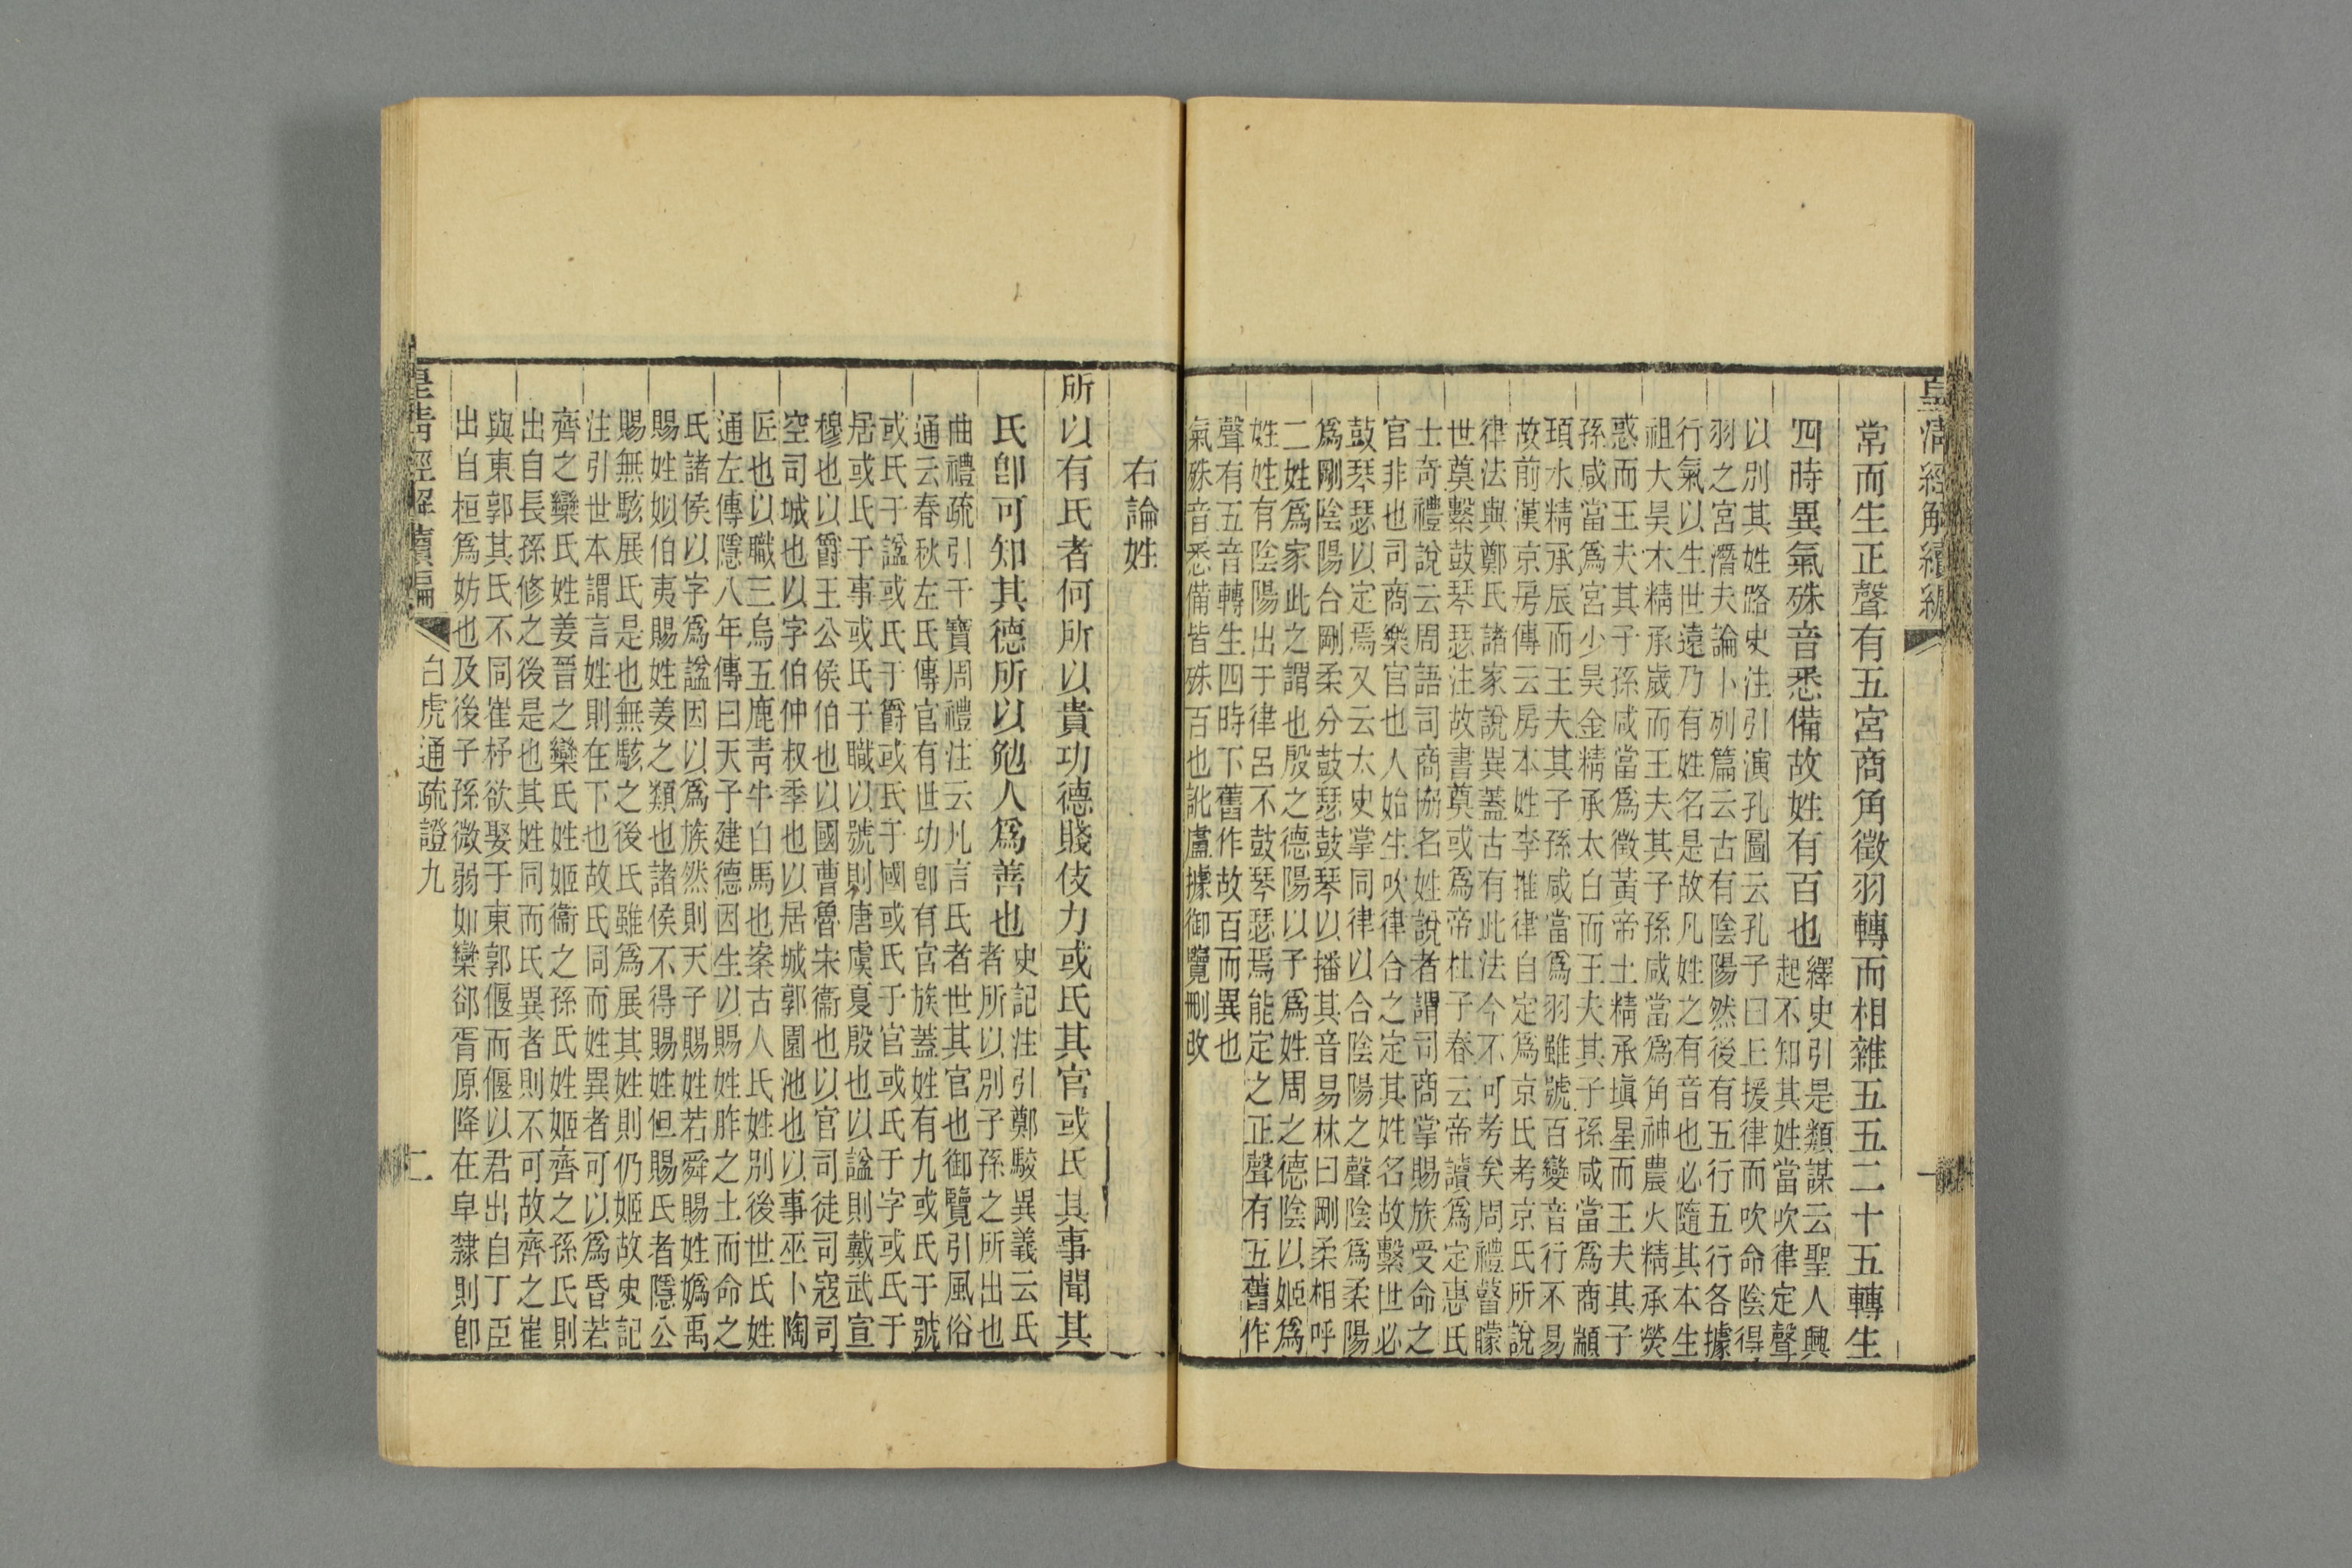 皇清經解續編 一
常而生正聲有五宮商角徵羽轉而相雜五五二十五轉生
四時異氣殊音悉備故姓有百也
繹史引是類謀云聖人興
起不知其姓當吹律定聲
以別其姓路史注引演孔圖云孔子曰丘援律而吹命陰得
羽之宮潛夫論卜列篇云古有陰陽然後有五行五行各據
行氣以生世遠乃有姓名是故凡姓之有音也必隨其本生
祖大昊木精承歲而王夫其子孫咸當爲角神農火精承熒
惑而王夫其子孫咸當爲徵黃帝土精承塡星而王夫其子
孫咸當爲宮少昊金精承太白而王夫其子孫咸當爲商顓
頊水精承辰而王夫其子孫咸當爲羽雖號百變音行不易
故前漢京房傳云房本姓李推律自定爲京氏考京氏所說
律法與鄭氏諸家說異蓋古有此法今不可考矣周禮瞽矇
世奠繫鼓琴瑟注故書奠或爲帝杜子春云帝讀爲定惠氏
士奇禮說云周語司商協名姓說者謂司商掌賜族受命之
官非也司商樂官也人始生吹律合之定其姓名故繫世必
鼓琴瑟以定焉又云太史掌同律以合陰陽之聲陰爲柔陽
爲剛陰陽台剛柔分鼓瑟鼓琴以播其音易林曰剛柔相呼
二姓爲家此之謂也殷之德陽以子爲姓周之德陰以姬爲
姓姓有陰陽出于律呂不鼓琴瑟焉能定之正聲有五舊作
聲有五音轉生四時下舊作故百而異也
氣殊音悉備皆殊百也訛盧據御覽刪改
右論姓
所以有氏者何所以貴功德賤伎力或氏其官或氏其事聞其
氏卽可知其德所以勉人爲善也
史記注引鄭駁異義云氏
者所以別子孫之所出也
曲禮疏引干寶周禮注云凡言氏者世其官也御覽引風俗
通云春秋左氏傳官有世功卽有官族蓋姓有九或氏于號
或氏于諡或氏于爵或氏于國或氏于官或氏于字或氏于
居或氏于事或氏于職以號則唐虞夏殷也以諡則戴武宣
穆也以爵王公侯伯也以國曹魯宋衞也以官司徒司寇司
空司城也以字伯仲叔季也以居城郭園池也以事巫卜陶
匠也以職三烏五鹿靑牛白馬也案古人氏姓別後世氏姓
通左傳隱八年傳曰天子建德因生以賜姓胙之土而命之
氏諸侯以字爲諡因以爲族然則天子賜姓若舜賜姓嬀禹
賜姓姒伯夷賜姓姜之類也諸侯不得賜姓但賜氏者隱公
賜無駭展氏是也無駭之後氏雖爲展其姓則仍姬故史記
注引世本謂言姓則在下也故氏同而姓異者可以爲昏若
齊之欒氏姓姜晉之欒氏姓姬衞之孫氏姓姬齊之孫氏則
出自長孫修之後是也其姓同而氏異者則不可故齊之崔
與東郭其氏不同崔杼欲娶于東郭偃而偃以君出自丁臣
出自桓爲妨也及後子孫微弱如欒郤胥原降在皁隸則卽
皇淸經解續編 白虎通疏證九 二